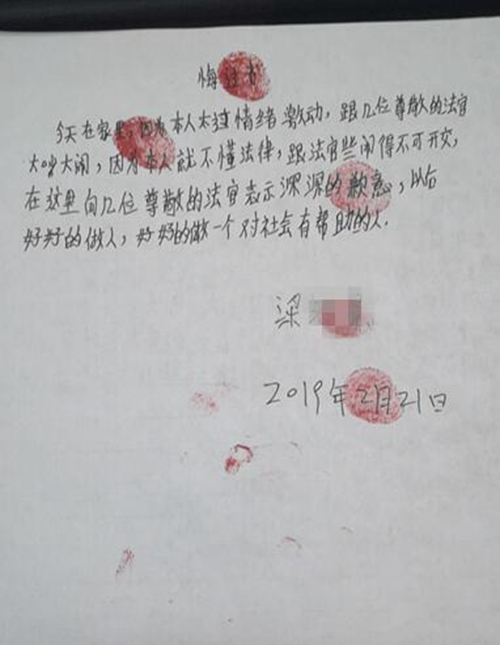 悔过书
今天在家里，因为本人太过情绪激动，跟几位尊敬的法官
大吵大闹，因为本人就不懂法律，跟法官些闹得不可开交，
在这里向几位尊敬的法官表示深深的歉意，以后
好好的做人，好好的做一个对社会有帮助的人.
梁
2019年2月21日